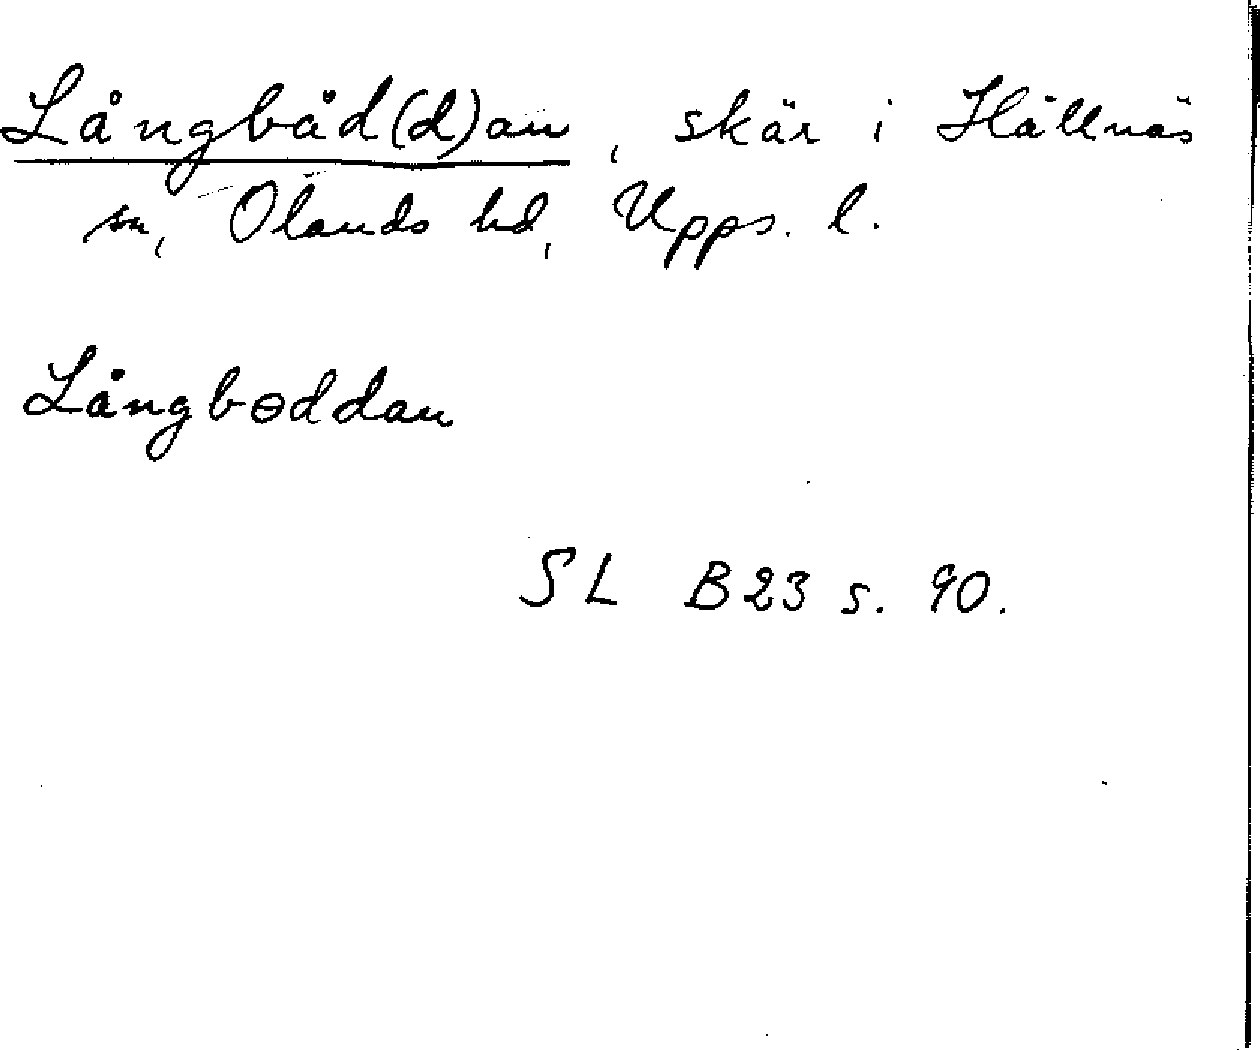 Långbåd(d)an, skär i Hållnäs
sn, Olands hd, Upps. l.
Långbɵddan
SL B23 s. 90.